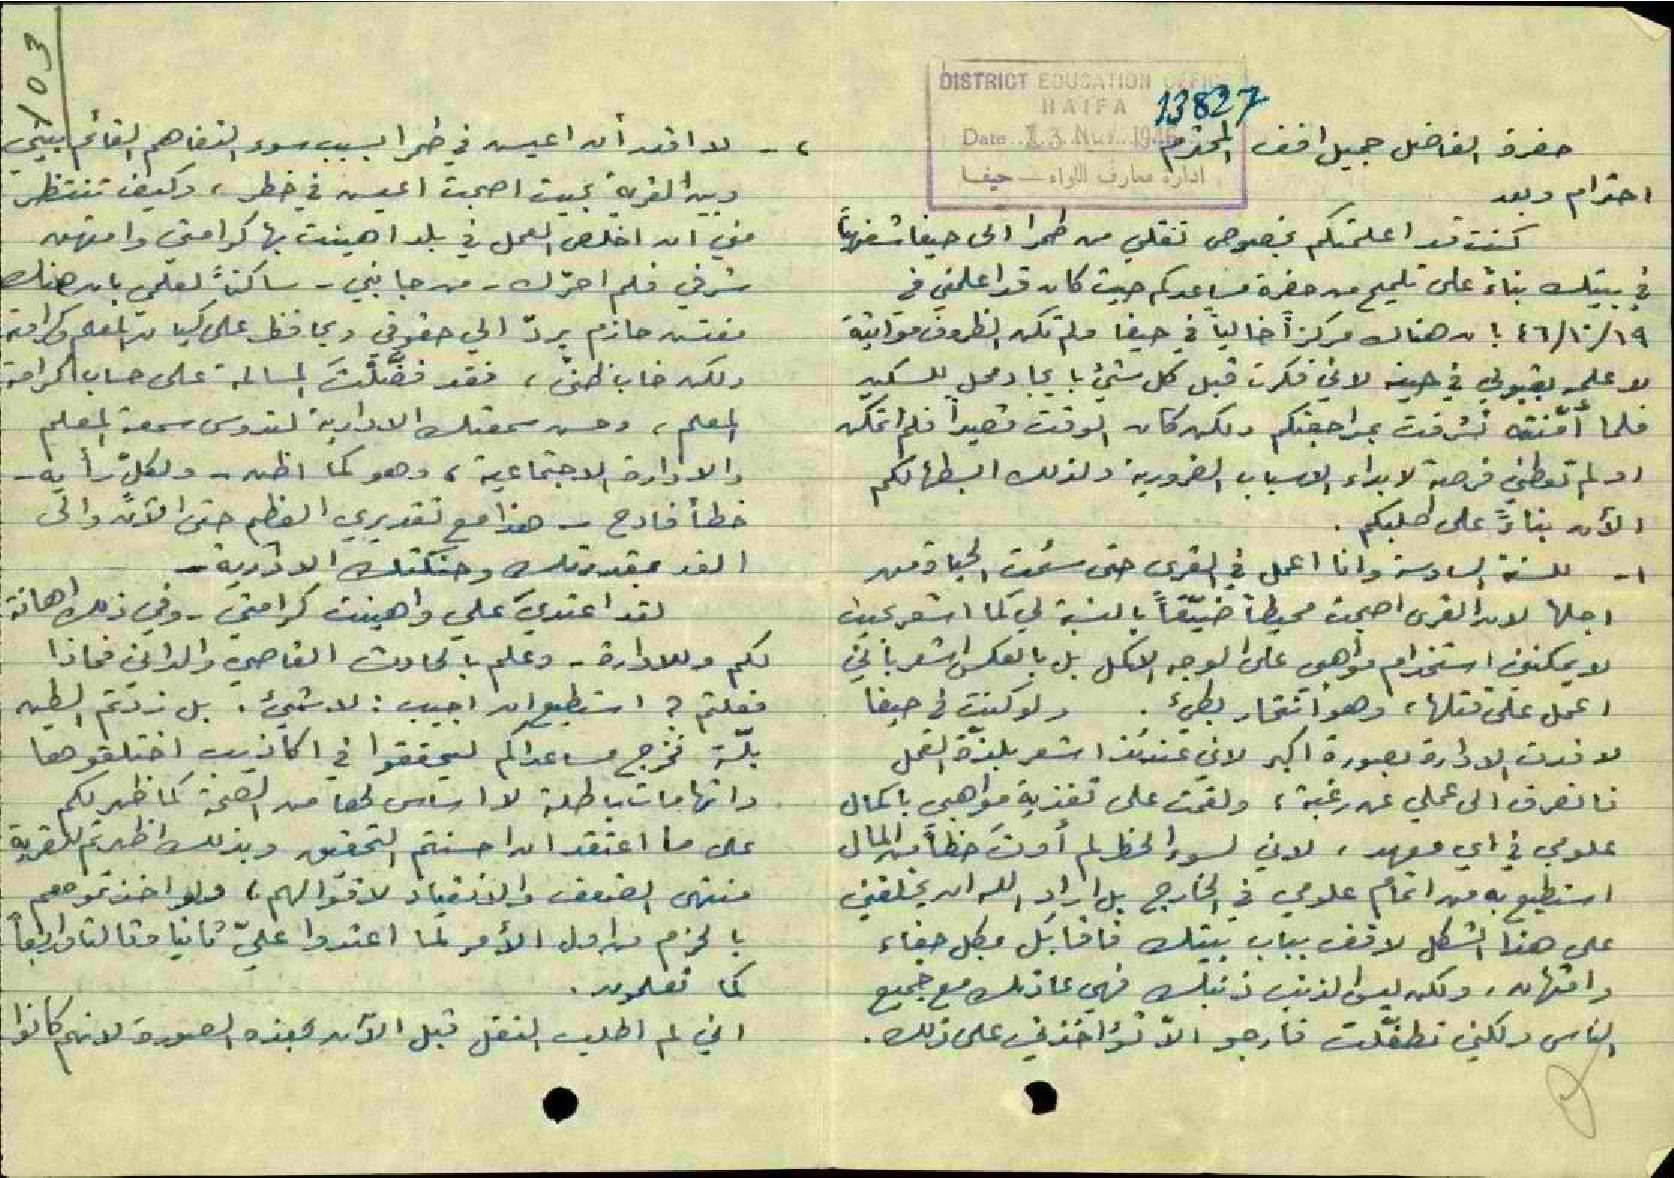 DISTRICT EDUCATION OFFICE
HAIFA
13827
Date 13 Nov. 1946
ادارة معارف اللواء — حيفا
حضرة الفاضل جميل افندي المحترم
احترام وبعد
كنت قد اعلمتكم بخصوص نقلي من طمرا الى حيفا شفهياً
في بيتك بناءً على تلميح من حضرة مساعدكم حيث كان قد اعلمني في
١٩/١٠/٤٦ بان هناك مركزاً خالياً في حيفا ولم تكن الظروف مواتية
لاعلمه بقبولي في حينه لاني فكرت قبل كل شيء بايجاد محل للسكن
فلما أمّنته تشرفت بمراجعتكم ولكن كان الوقت قصيراً فلم اتمكن
او لم تعطني فرصة لابداء الاسباب الضرورية ولذلك ابسطها لكم
الآن بناءً على طلبكم .
١- للسنة السادسة وانا اعمل في القرى حتى سئمت الحياة من
اجلها لان القرى اصبحت محيطاً ضيّقاً بالنسبة لي كما اشعر بحيث
لا يمكنني استخدام مواهبي على الوجه الاكمل بل بالعكس اشعر بأنني
اعمل على قتلها، وهو انتحار بطيء . ولو كنت في حيفا
لافدت الادارة بصورة اكبر لاني عندئذ اشعر بلذّة العمل
فانصرف الى عملي عن رغبة ، ولقمت على تغذية مواهبي باكمال
علومي في اي معهد ، لاني لسوء الحظ لم أوت حظاً من المال
استطيع به من اتمام علومي في الخارج بل اراد الله ان يخلقني
على هذا الشكل لاقف بباب بيتك فاقابل بكل جفاء
وامتهان، ولكن ليس الذنب ذنبك فهي عادتك مع جميع
الناس ولكني تطفّلت فارجو الاّ تؤاخذني على ذلك .
103
٢- لا اقدر أن اعيش في طمرا بسبب سوء التفاهم القائم بيني
وبين القرية بحيث اصبحت اعيش في خطر ، وكيف تنتظر
مني ان اخلص العمل في بلد اهينت بها كرامتي وامتهن
شرفي فلم احرّك - من جانبي - ساكناً لعلمي بان هناك
مفتش حازم يردّ الي حقوقي ويحافظ على كيان المعلم وكرامته
ولكن خاب ظني ، فقد فضَّلتَ المسالمة على حساب كرامة
المعلم ، وحسن سمعتك الادارية لتدوس سمعة المعلم
والادارة الاجتماعية ، وهو كما اظن - ولكلٍّ رأيه -
خطأ فادح - هذا مع تقديري العظيم حتى الآن والى
الغد بمقدرتك وحنكتك الادارية -
لقد اعتدي علي واهينت كرامتي - وفي ذلك اهانة
لكم وللادارة - وعلم بالحادث القاصي والداني فماذا
فعلتم ؟ استطيع ان اجيب : لا شيء . بل زدتم الطين
بلّة فخرج مساعداكم ليحققوا في اكاذيب اختلقوها
واتهامات باطلة لا اساس لها من الصحة كما ظهر لكم
على ما اعتقد ان احسنتم التحقيق وبذلك اظهرتم للقرية
منتهى الضعف والانقياد لاقوالهم ، ولو اخذتموهم
بالحزم من اول الأمر لما اعتدوا عليّ ثانيا وثالثا ورابعاً
كما تعلمون .
اني لم اطلب النقل قبل الآن بهذه الصورة لانهم كانوا